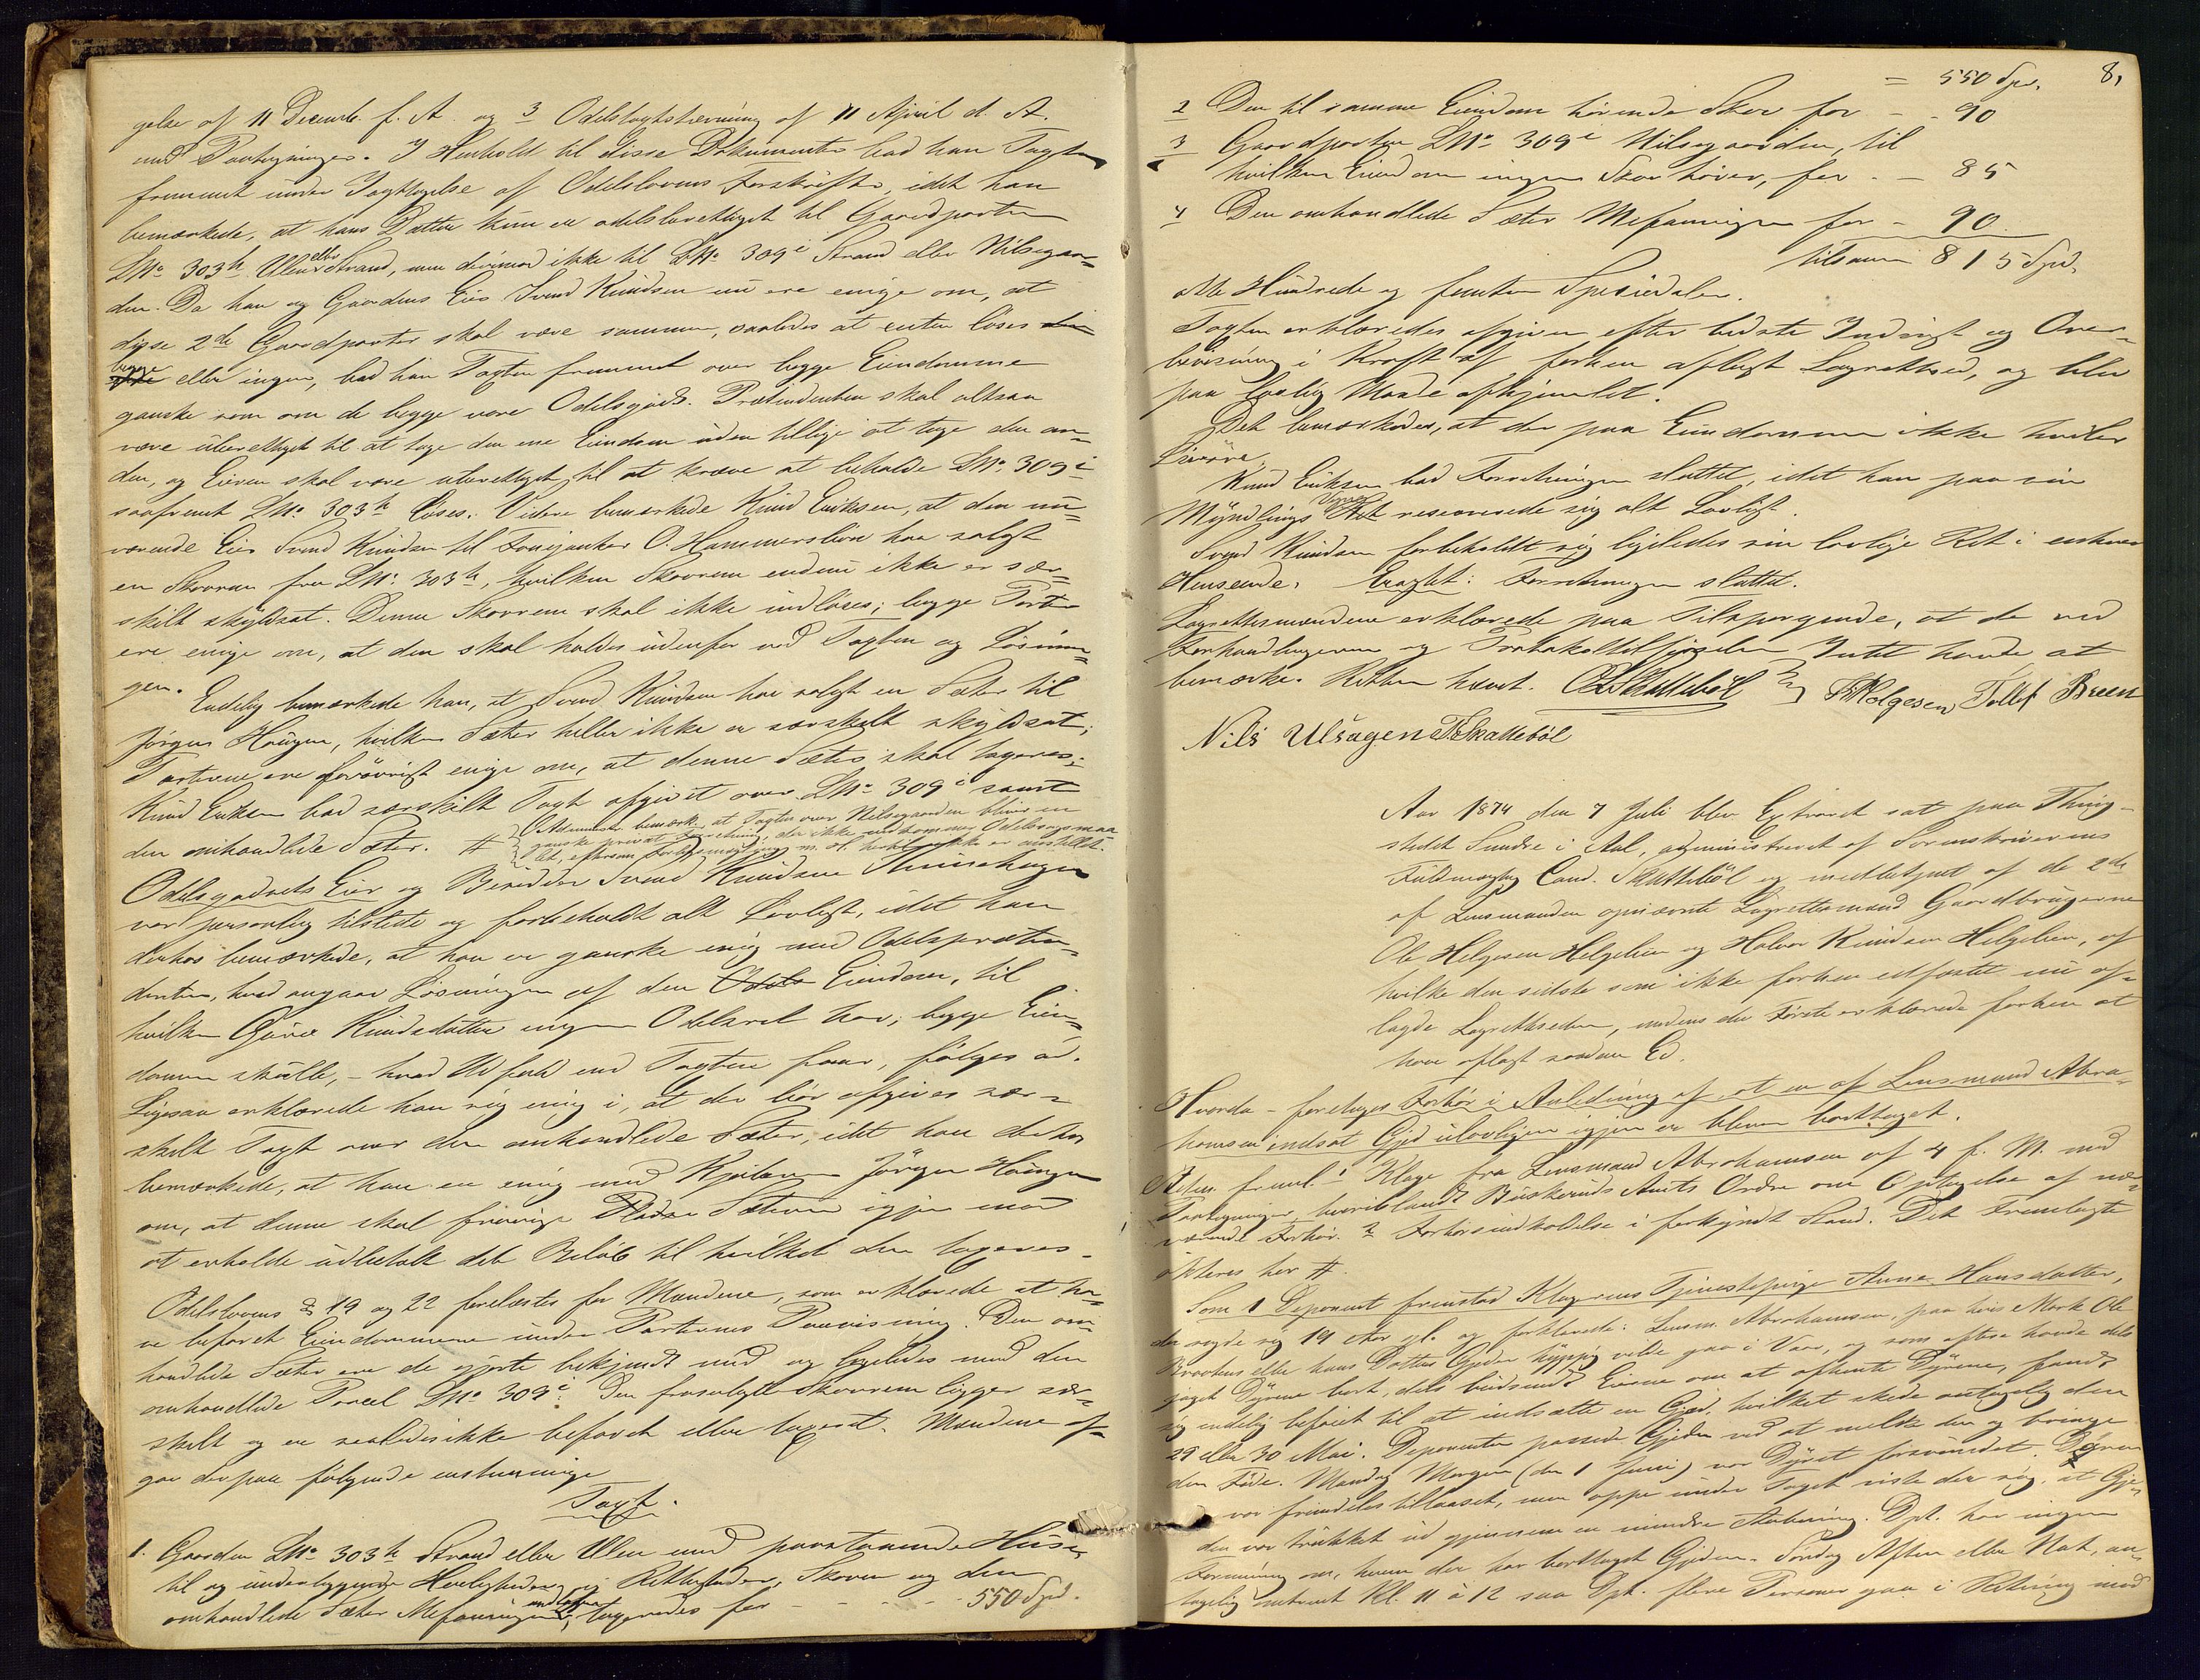 gelse af 11 Decemb. f. A. og 3 Odelstagtstævning af 11 April d. A.
med Paategninger. I Henhold til disse Dokumenter bad han Taxten
fremmet under Iagttagelse af Odelslovens Forskrifter, idet han
bemærkede, at hans Datter kun er odelsberettiget til Gaardparten
LNo 303h Ulen eller Strand, men derimod ikke til LNo 309i Strand eller Nilsegaar=
den. Da han og Gaardens Eier Svend Knudsen nu ere enige om, at
disse 2de Gaardparter skal være sammen, saaledes at enten løses
begge eller ingen, bad han Taxten fremmet over begge Eiendomme
ganske som om de begge vare Odelsgods. Prætendenten skal altsaa
være uberettiget til at tage den ene Eiendom uden tillige at tage den an=
den, og Eieren skal være uberettiget til at kræve at beholde LNo 309i
saafremt LNo 303h løses. Videre bemærkede Knud Eriksen, at den nu=
værende Eier Svend Knudsen til Fourjunker O. Hammersbøen har solgt
en Skovrem fra LNo 303h, hvilken Skovrem endnu ikke er sær=
skilt skyldsat. Denne Skovrem skal ikke indløses; begge Parter
ere enige om, at den skal holdes udenfor ved Taxten og Løsnin=
gen. Endelig bemærkede han, at Svend Knudsen har solgt en Sæter til
Jørgen Haugen, hvilken Sæter heller ikke er særskilt skyldsat;
Parterne ere forøvrigt enige om, at denne Sæter skal taxeres;
Knud Eriksen bad særskilt Taxt afgivet over LNo 309i samt
den omhandlede Sæter. # { Administr bemærk. at Taxten over Nilsegaarden bliver en
ganske privat Forretning, der ikke vedkommer Odelssagsmaa
let, eftersom m. H. hertil ikke er anstillet.
Odelsgodsets Eier og Besidder Svend Knudsen
var personlig tilstede og forbeholdt alt Lovligt, idet han
derhos bemærkede, at han er ganske enig med Odelspræten=
denten, hvad angaar Løsningen af den Eiendom, til
hvilken Guro Knudsdatter ingen Odelsret har; begge Eien=
domme skulle, – hvad Udfald end Taxten faar, følges ad.
Ligesaa erklærede han sig enig i, at der bør afgives sær=
skilt Taxt over den omhandlede Sæter, idet han derhos
bemærkede, at han er enig med Kjøberen Jørgen Haugen
om, at denne skal frivige Sæteren igjen mod
at erholde udbetalt det Beløb til hvilket den taxeres.
Odelslovens §§ 19 og 22 forelæstes for Mændene, som erklærede at ha=
ve befaret Eiendommene under Parternes Paavisning. Den om=
handlede Sæter ere de gjorte bekjendt med og ligeledes med den
omhandlede Parcel LNo 309i. Den frasolgte Skovrem ligger sær=
skilt og er saaledes ikke befaret eller taxeret. Mændene af=
gav derpaa følgende enstemmige
Taxt.
1. Gaarden LNo 303h Strand eller Ulen med paastaaende Huse,
til og underliggende Herligheder og Rettigheder, Skoven og den
omhandlede Sæter undtagen, taxeredes for - - - - - 550 Spd.
= 550 Spd. 8,
2 Den til samme Eiendom hørende Skov for - - 90
3 Gaardparten LNo 309i Nilsegaarden, til
hvilken Eiendom ingen Skov hører, for - - 85
4 Den omhandlede Sæter for - 90
tilsammen 815 Spd.
otte Hundrede og femten Speciedaler.
Taxten erklæredes afgiven efter bedste Indsigt og Over=
bevisning i Kraft af forhen aflagt Lagretted, og blev
paa lovlig Maade afhjemlet.
Det bemærkedes, at der paa Eiendommen ikke hviler
Livøre.
Knud Eriksen bad Forretningen sluttet, idet han paa sin
Myndlings Vegne reserverede sig alt Lovligt.
Svend Knudsen forbeholdt sig ligeledes sin lovlige Ret i enhver
Henseende. Eragtet: Forretningen sluttet.
Lagrettesmændene erklærede paa Tilspørgende, at de ved
Forhandlingerne og Protokoltilførselen Intet havde at
bemærke. Retten hævet. OSkattebøl Helgesen Tollef Breen
Nils Ulsagen TSkattebøl
Aar 1874 den 7 Juli blev Extraret sat paa Thing=
stedet Sundre i Aal, administreret af Sorenskriverens
Fuldmægtig Cand. Skattebøl og medbetjent af de 2de
af Lensmanden opnævnte Lagrettesmænd Gaardbrugerne
Ole Helgesen Helgelien og Halvor Knudsen Helgelien, af
hvilke den sidste som ikke forhen edfæstet nu af=
lagde Lagretteden, medens den Første erklærede forhen at
have aflagt saadan Ed.
Hvorda – foretages Forhør i Anledning af, at en af Lensmand Abra=
hamsen indsat Gjed ulovligen igjen er bleven borttaget.
Adm. freml. 1 Klage fra Lensmand Abrahamsen af 4 f. M. med
Paategninger, hvoriblandt Buskeruds Amts Ordre om Optagelse af nær=
værende Forhør. 2 Forhørsindkaldelse i forkyndt Stand. Det Fremlagte
akteres her #.
Som 1 Deponent fremstod Klagerens Tjenestepige Anne Hansdatter,
der sagde sig 19 Aar gl. og forklarede: Lensm. Abrahamsen, paa hvis Mark Ole
Braatens eller hans Datters Gjeder hyppig vilde gaa i Vaar, og som oftere havde dels
jaget Dyrene bort, dels budsendt Eierne om at afhente Dyrene, fandt
sig endelig beføiet til at indsætte en Gjed, hvilket skede antagelig den
29 eller 30 Mai. Deponenten passede Gjeden ved at melke den og bringe
den Føde. Mandag Morgen (den 1 Juni) var Dyret forsvundet. Døren
var fremdeles tillaaset, men oppe under Taget viste der sig, at Gje=
den var trukket ud gjennem en mindre Aabning. Dpt. har ingen
Formening om, hvem der har borttaget Gjeden. Søndag Aften eller Nat, an=
tagelig omtrent Kl. 11 à 12 saa Dpt. flere Personer gaa i Retning mod